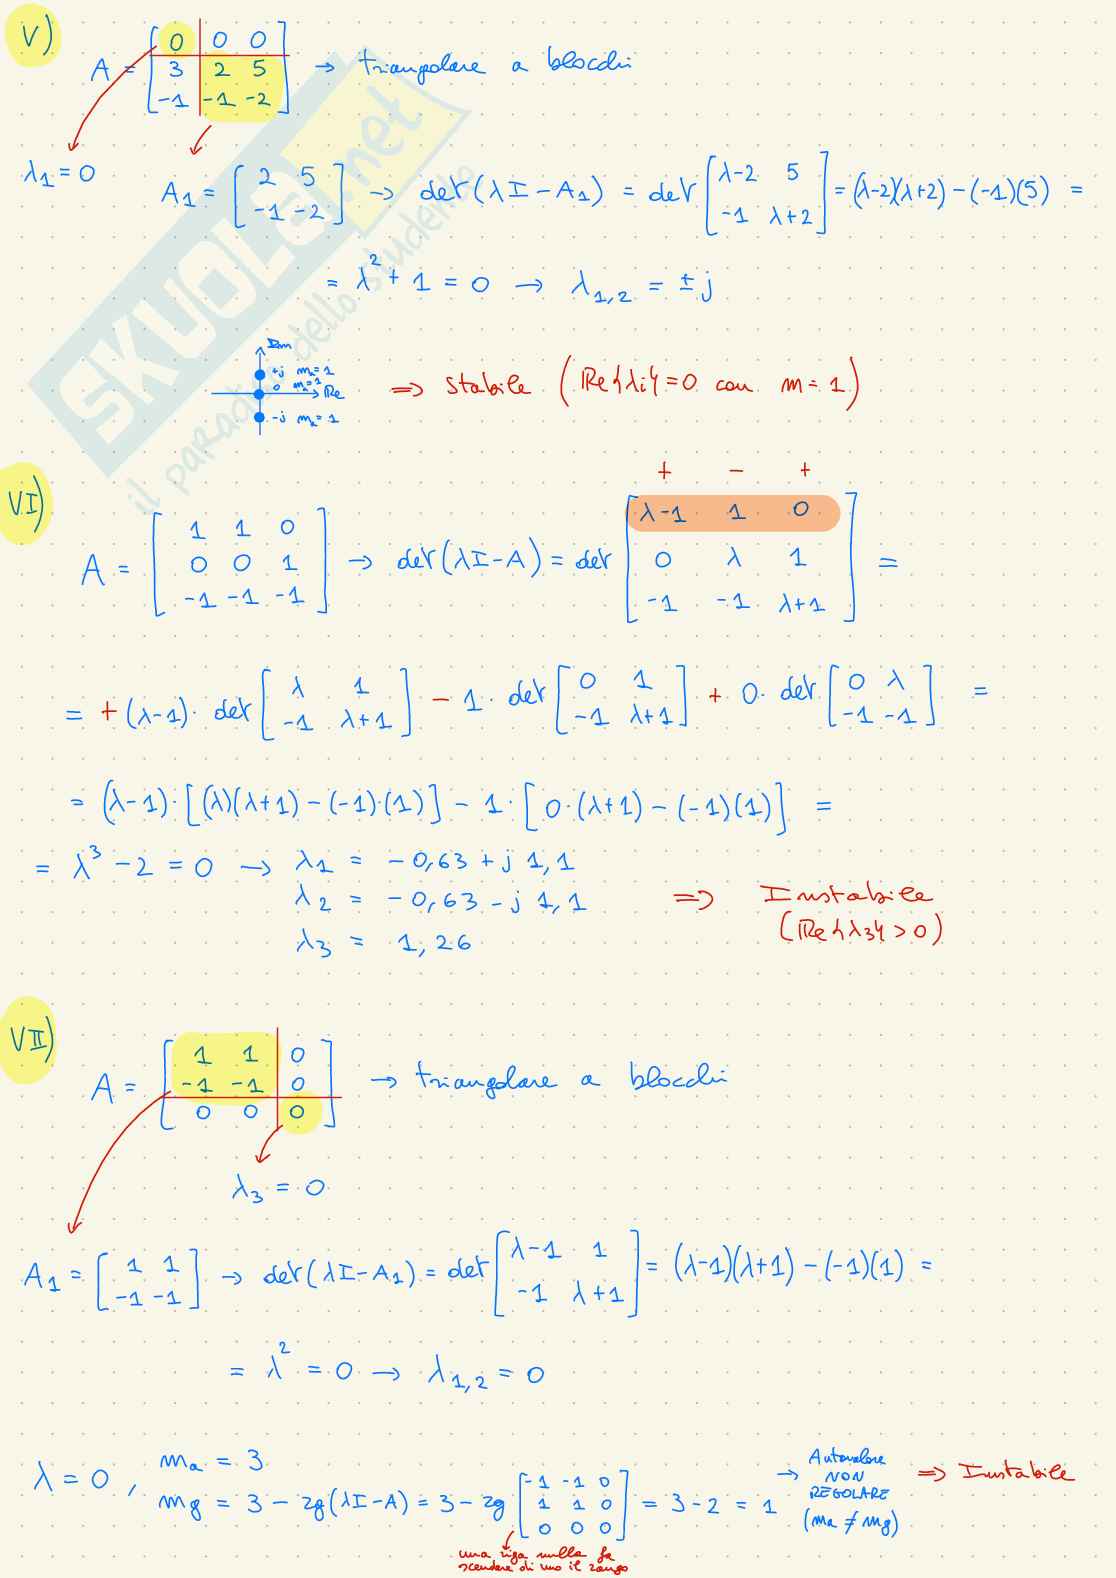 V)
A = [0 0 0; 3 2 5; -1 -1 -2] → triangolare a blocchi
λ1 = 0
A1 = [2 5; -1 -2] → det(λI - A1) = det [λ-2 5; -1 λ+2] = (λ-2)(λ+2) - (-1)(5) =
= λ² + 1 = 0 → λ1,2 = ± j
Im
+j ma = 1
0 ma = 1
Re
-j ma = 1
⇒ Stabile (Re{λi} = 0 con m = 1)
VI)
+ - +
A = [1 1 0; 0 0 1; -1 -1 -1] → det(λI - A) = det [λ-1 1 0; 0 λ 1; -1 -1 λ+1] =
= + (λ-1) · det [λ 1; -1 λ+1] - 1 · det [0 1; -1 λ+1] + 0 · det [0 λ; -1 -1] =
= (λ-1) · [(λ)(λ+1) - (-1)·(1)] - 1 · [0·(λ+1) - (-1)(1)] =
= λ³ - 2 = 0 → λ1 = -0,63 + j 1,1
λ2 = -0,63 - j 1,1
λ3 = 1,26
⇒ Instabile
(Re{λ3} > 0)
VII)
A = [1 1 0; -1 -1 0; 0 0 0] → triangolare a blocchi
λ3 = 0
A1 = [1 1; -1 -1] → det(λI - A1) = det [λ-1 1; -1 λ+1] = (λ-1)(λ+1) - (-1)(1) =
= λ² = 0 → λ1,2 = 0
λ = 0 , ma = 3
mg = 3 - rg(λI - A) = 3 - rg [-1 -1 0; 1 1 0; 0 0 0] = 3 - 2 = 1 → Autovalore NON REGOLARE (ma ≠ mg) ⇒ Instabile
una riga nulla fa
scendere di uno il rango
SKUOLA.net
il paradiso dello studente